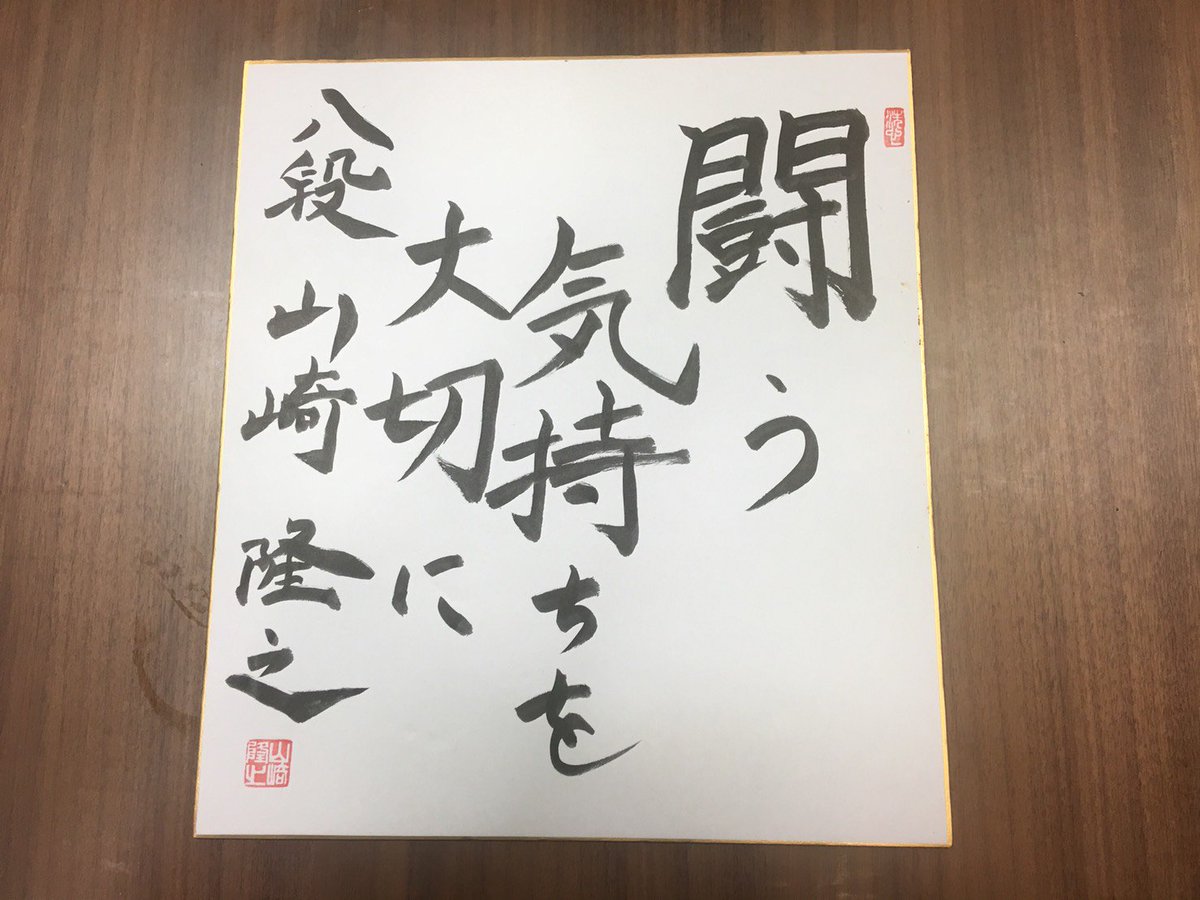 闘う
気持ちを
大切に
八段 山崎 隆之
山崎
隆之